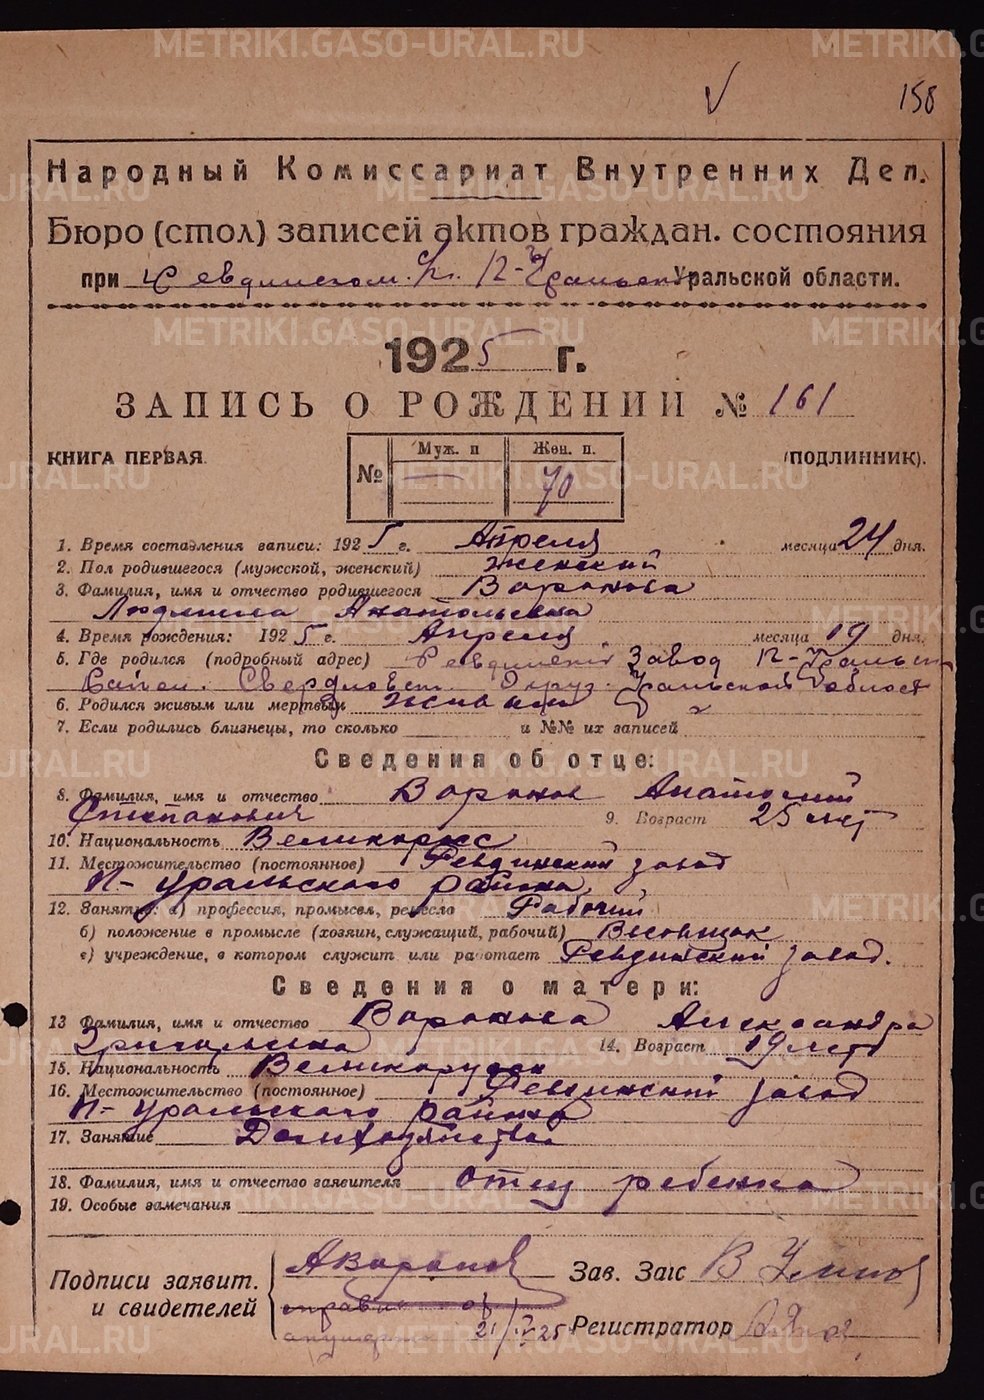 158
Народный Комиссариат Внутренних Дел.
Бюро (стол) записей актов граждан. состояния
при Ревдинском П-Уральск Уральской области.
1925 г.
ЗАПИСЬ О РОЖДЕНИИ № 161
КНИГА ПЕРВАЯ. (ПОДЛИННИК).
№ Муж. п — Жен. п. 70
1. Время составления записи: 1925 г. Апреля месяца 24 дня.
2. Пол родившегося (мужской, женский) женский
3. Фамилия, имя и отчество родившегося Воронова
Людмила Анатольевна
4. Время рождения: 1925 г. Апреля месяца 19 дня.
5. Где родился (подробный адрес) Ревдинский Завод П-Уральск
Район. Свердловск. Округ. Уральской области
6. Родился живым или мертвым живым
7. Если родились близнецы, то сколько и №№ их записей
Сведения об отце:
8. Фамилия, имя и отчество Воронов Анатолий
Степанович 9. Возраст 25 лет
10. Национальность Великоросс
11. Местожительство (постоянное) Ревдинский завод
П-Уральского района
12. Занятие: а) профессия, промысел, ремесло Рабочий
б) положение в промысле (хозяин, служащий, рабочий)
в) учреждение, в котором служит или работает Ревдинский завод.
Сведения о матери:
13 Фамилия, имя и отчество Воронова Александра
Григорьевна 14. Возраст 19 лет
15. Национальность Великорусск
16. Местожительство (постоянное) Ревдинский завод
П-Уральского района
17. Занятие Домохозяйкой
18. Фамилия, имя и отчество заявителя отец ребенка
19. Особые замечания
Подписи заявит. и свидетелей АВоронов Зав. Загс В
справка от
21/IV 25 Регистратор
METRIKI.GASO-URAL.RU